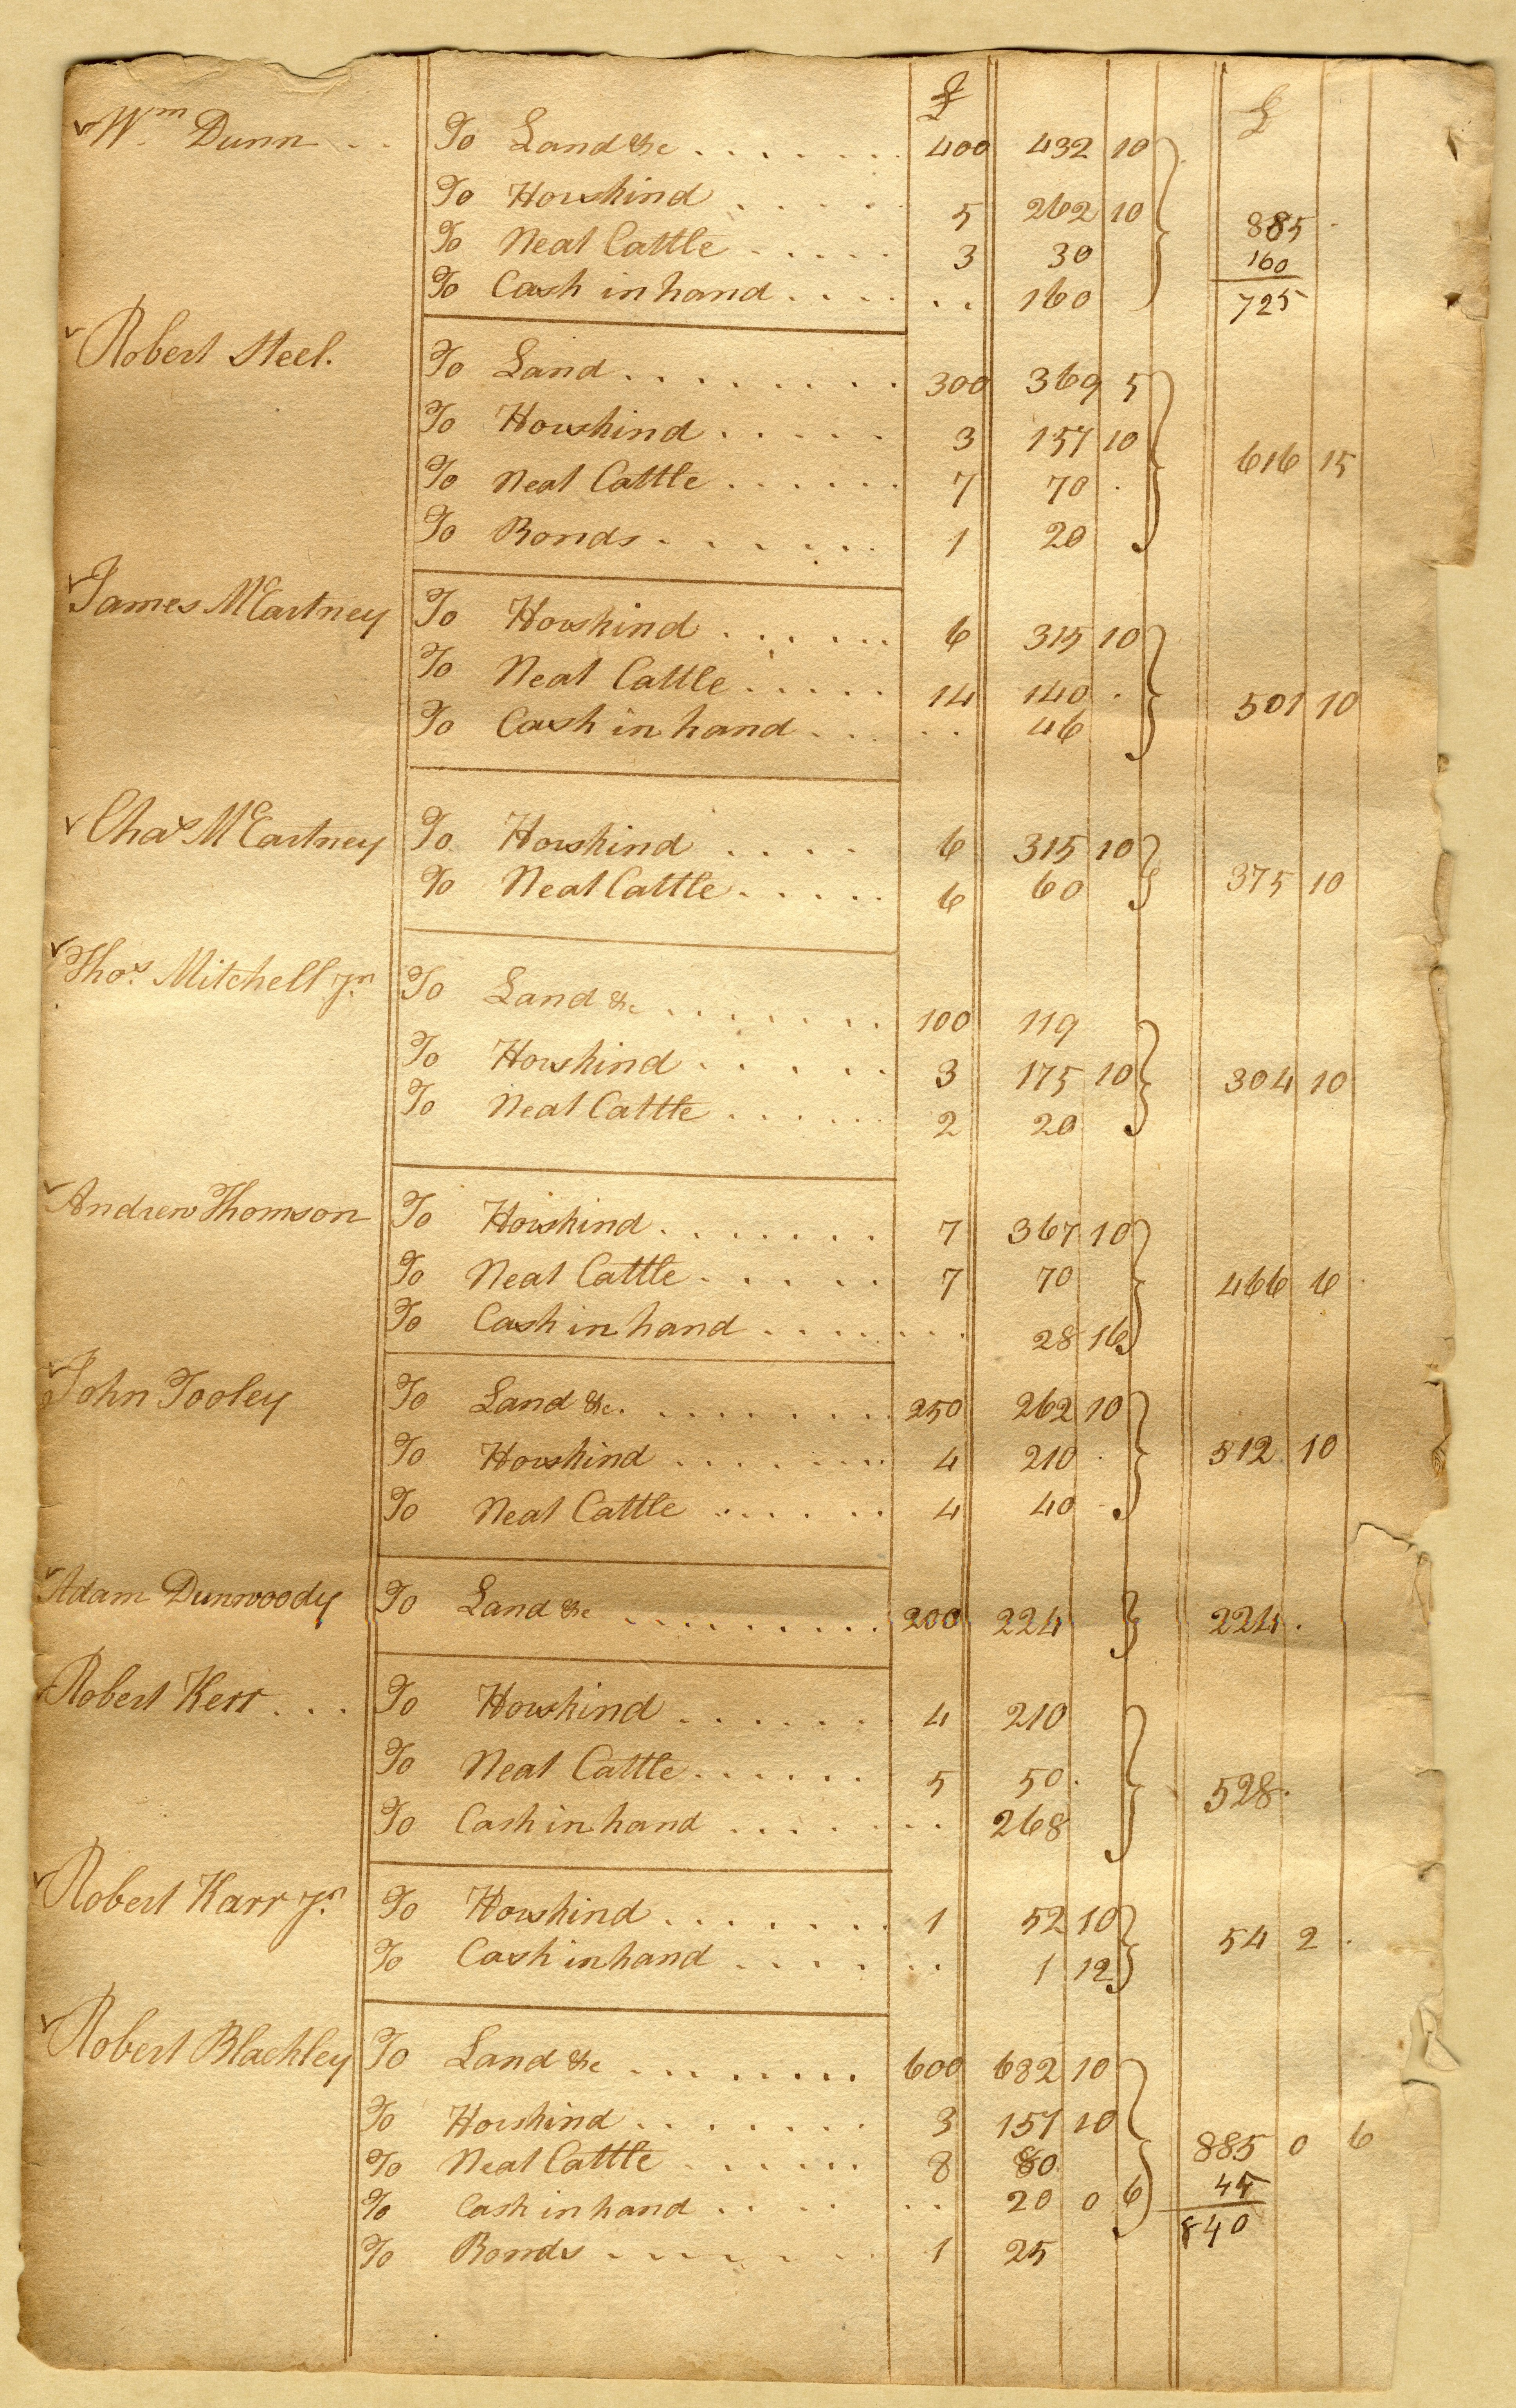 £ £
Wm Dunn . . To Land &c . . . . . . . 400 432 10
To Horskind . . . . . 5 262 10 885
To Neat Cattle . . . . . 3 30 160
To Cash in hand . . . . . . 160 725
Robert Steel. To Land . . . . . . . . 300 369 5
To Horskind . . . . . 3 157 10 616 15
To Neat Cattle . . . . . . 7 70
To Bonds . . . . . . 1 20
James McCartney To Horskind . . . . . . 6 315 10
To Neat Cattle . . . . . 14 140 501 10
To Cash in hand . . . . . 46
Chas McCartney To Horskind . . . . 6 315 10
To Neat Cattle . . . . . 6 60 375 10
Thos. Mitchell Jn. To Land &c . . . . . . . 100 119
To Horskind . . . . . 3 175 10 304 10
To Neat Cattle . . . . . . 2 20
Andrew Thomson To Horskind . . . . . . . 7 367 10
To Neat Cattle . . . . . 7 70 466 6
To Cash in hand . . . . . . . 28 16
John Tooley To Land &c. . . . . . . . . 250 262 10
To Horskind . . . . . . . . 4 210 512 10
To Neat Cattle . . . . . . 4 40
Adam Dunwoody To Land &c . . . . . . . . . 200 224 224
Robert Kerr . . . To Horskind . . . . . . . 4 210
To Neat Cattle . . . . . . 5 50 528
To Cash in hand . . . . . . . 268
Robert Karr Jn. To Horskind . . . . . . . 1 52 10 54 2
To Cash in hand . . . . . . . 1 12
Robert Blackley To Land &c . . . . . . . . 600 682 10
To Horskind . . . . . . . 3 157 10 885 0 6
To Neat Cattle . . . . . . 8 80 45
To Cash in hand . . . . . . 20 0 6 840
To Bonds . . . . . . . 1 25